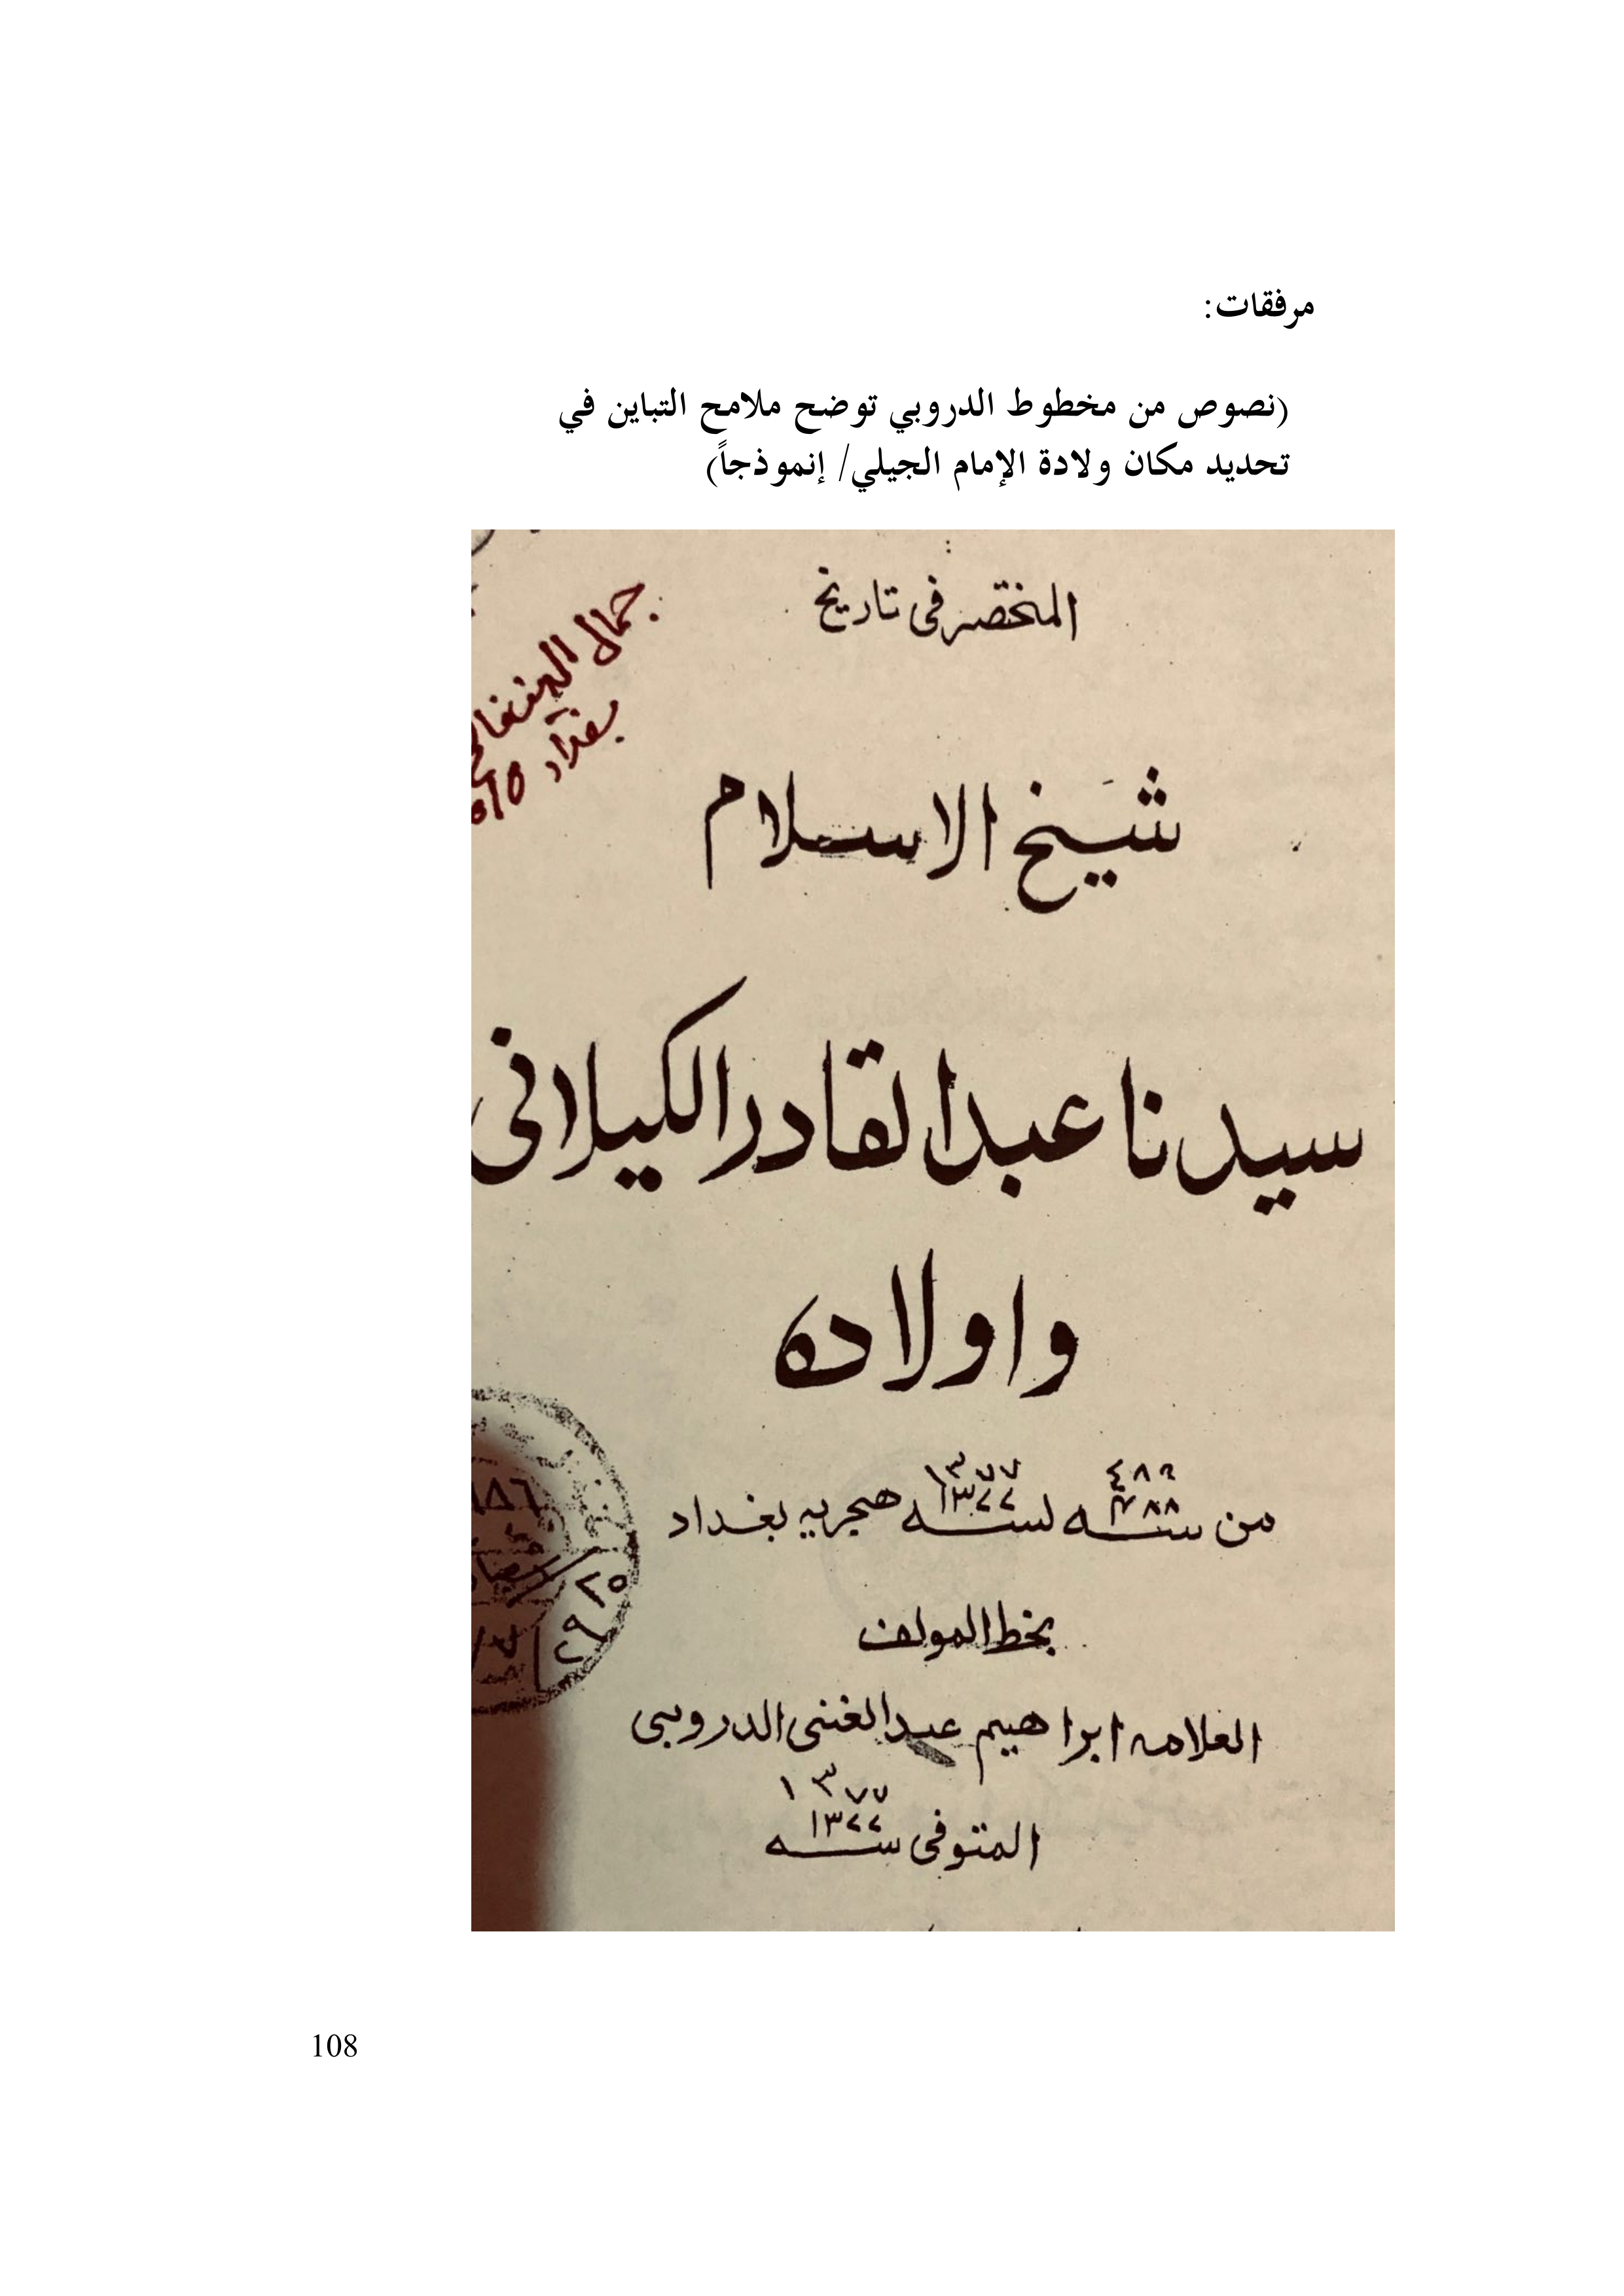 مرفقات:
(نصوص من مخطوط الدروبي توضح ملامح التباين في
تحديد مكان ولادة الإمام الجيلي/ إنموذجاً)
المختصر فى تاريخ
جمال الدين
بغداد
شيخ الاسلام
سيدنا عبدالقادر الكيلانى
واولاده
١٣٧٧
من سنه لسنه ١٣٧٧ هجريه بغداد
بخط المولف
العلامه ابراهيم عبدالغنى الدروبى
١٣٧٧
المتوفى سنه ١٣٧٧
108